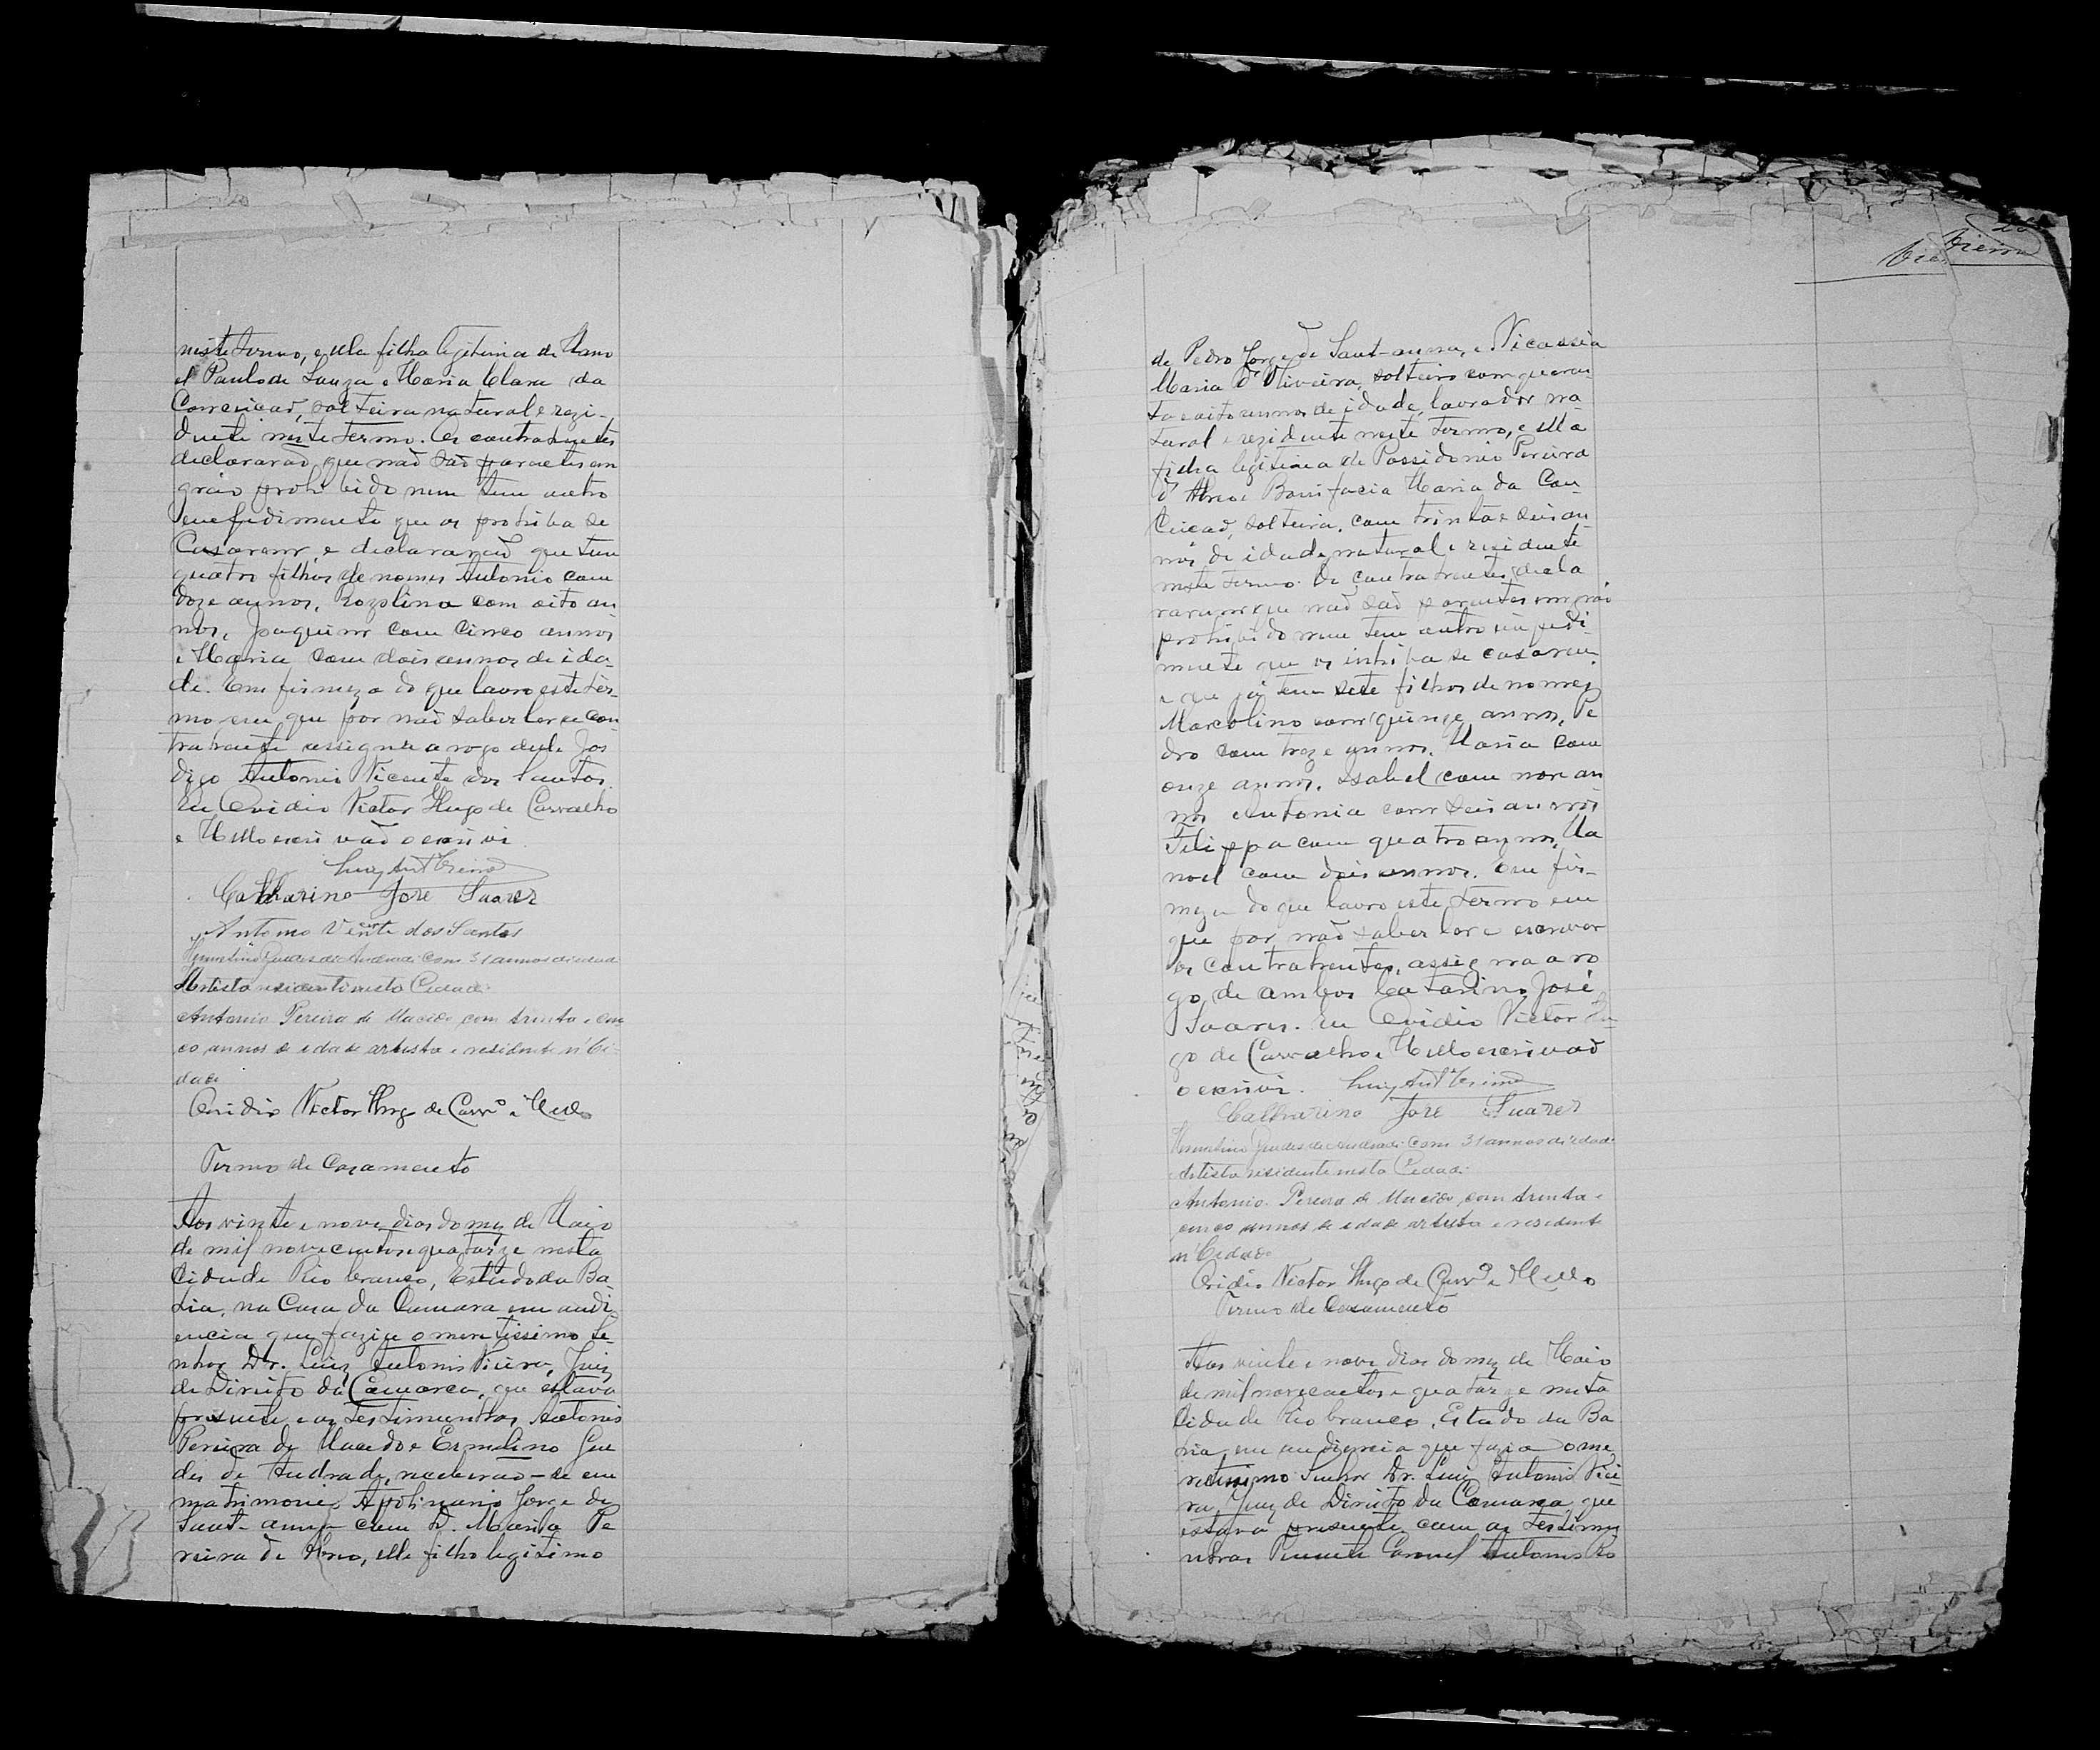 neste termo, e ella filha legitima de Mano
el Paulo de Souza e Maria Clara da
Conceicaõ, solteira natural e rezi-
dente neste termo. Os contrahentes
declararaõ que naõ saõ parentes em
gráo prohibido nem tem outro
empedimento que os prohiba se
Casarem, e declararaõ que tem
quatro filhos de nomes Antonio com
doze annos, Rozolina com oito an
nos, Joaquim com cinco annos
e Maria com dois annos de ida-
de. Em firmeza do que lavro este ter-
mo em que por naõ saber ler a con
trahente assigna a rogo della
Antonio Vicente dos Santos.
Eu Ovidio Victor Hugo de Carvalho
e Mello escrivaõ o escrivi.
Luiz Antº Vieira
Catharino Jose Suarez
Antonio Vicente dos Santos
Hermelino Guedes de Andrade com 31 annos de idade
Artista residente nesta Cidade
Antonio Pereira de Macêdo com trinta e cin
co annos de edade artista e residente n' Ci-
dade
Ovidio Victor Hugo de Carvº e Mello
Termo de Cazamento
Aos vinte e nove dias do mez de Maio
de mil novecentos quatorze nesta
Cidade Rio branco, Estado da Ba-
hia, na Casa da Camara em audi
encia que fazia o meretissimo Se-
nhor Dr. Luiz Antonio Vieira, Juiz
de Direito da Comarca, que estava
presente e as testimunhas Antonio
Pereira de Macedo e Ermelino Gue
des de Andrade, receberão-se em
matrimonio Apolinario Jorge de
Sant-anna com D. Maria Pe
reira de Abreo, elle filho legitimo
Vieira
de Pedro Jorge de Sant-anna, e Nicassia
Maria d'Oliveira, solteiro com quaren
ta e oito annos de idade, lavrador na
tural e rezidente neste termo, e ella
filha legitima de Possidonio Pereira
d'Abreo e Bonifacia Maria da Con-
ceicaõ, solteira, com trinta e seis an
nos de idade natural e residente
neste termo. Os contrahentes decla
raram que naõ saõ parentes em gráo
prohibido nem tem outro impedi
mento que os inhiba se casarem,
e que já tem sete filhos de nomes
Marcolino com quinze annos, Pe
dro com treze annos, Maria com
onze annos, Isabel com nove an
nos Antonia com seis annos
Felippa com quatro annos, Ma
noel com dois annos. Em fir-
meza do que lavro este termo em
que por naõ saber ler e escrever
os contrahentes, assigna a ro
go de ambos Catarino José
Soares. Eu Ovidio Victor Hu-
go de Carvalho e Mello escrivaõ
o escrivi. Luiz Antº Vieira
Catharino Jose Suarez
Hermelino Guedes de Andrade com 31 annos de idade
Artista residente nesta Cidade
Antonio Pereira de Macêdo com trinta e
cinco annos de edade artista e residente
n' Cidade
Ovidio Victor Hugo de Carvº e Mello
Termo de Casamento
Aos vinte e nove dias do mez de Maio
de mil novecentos e quatorze nesta
Cidade Rio branco, Estado da Ba
hia, em audiencia que fazia o me
retissimo Senhor Dr. Luiz Antonio Viei-
ra, Juiz de Direito da Comarca, que
estava presente com as testimu
nhas Tenente Coronel Antonio Ro